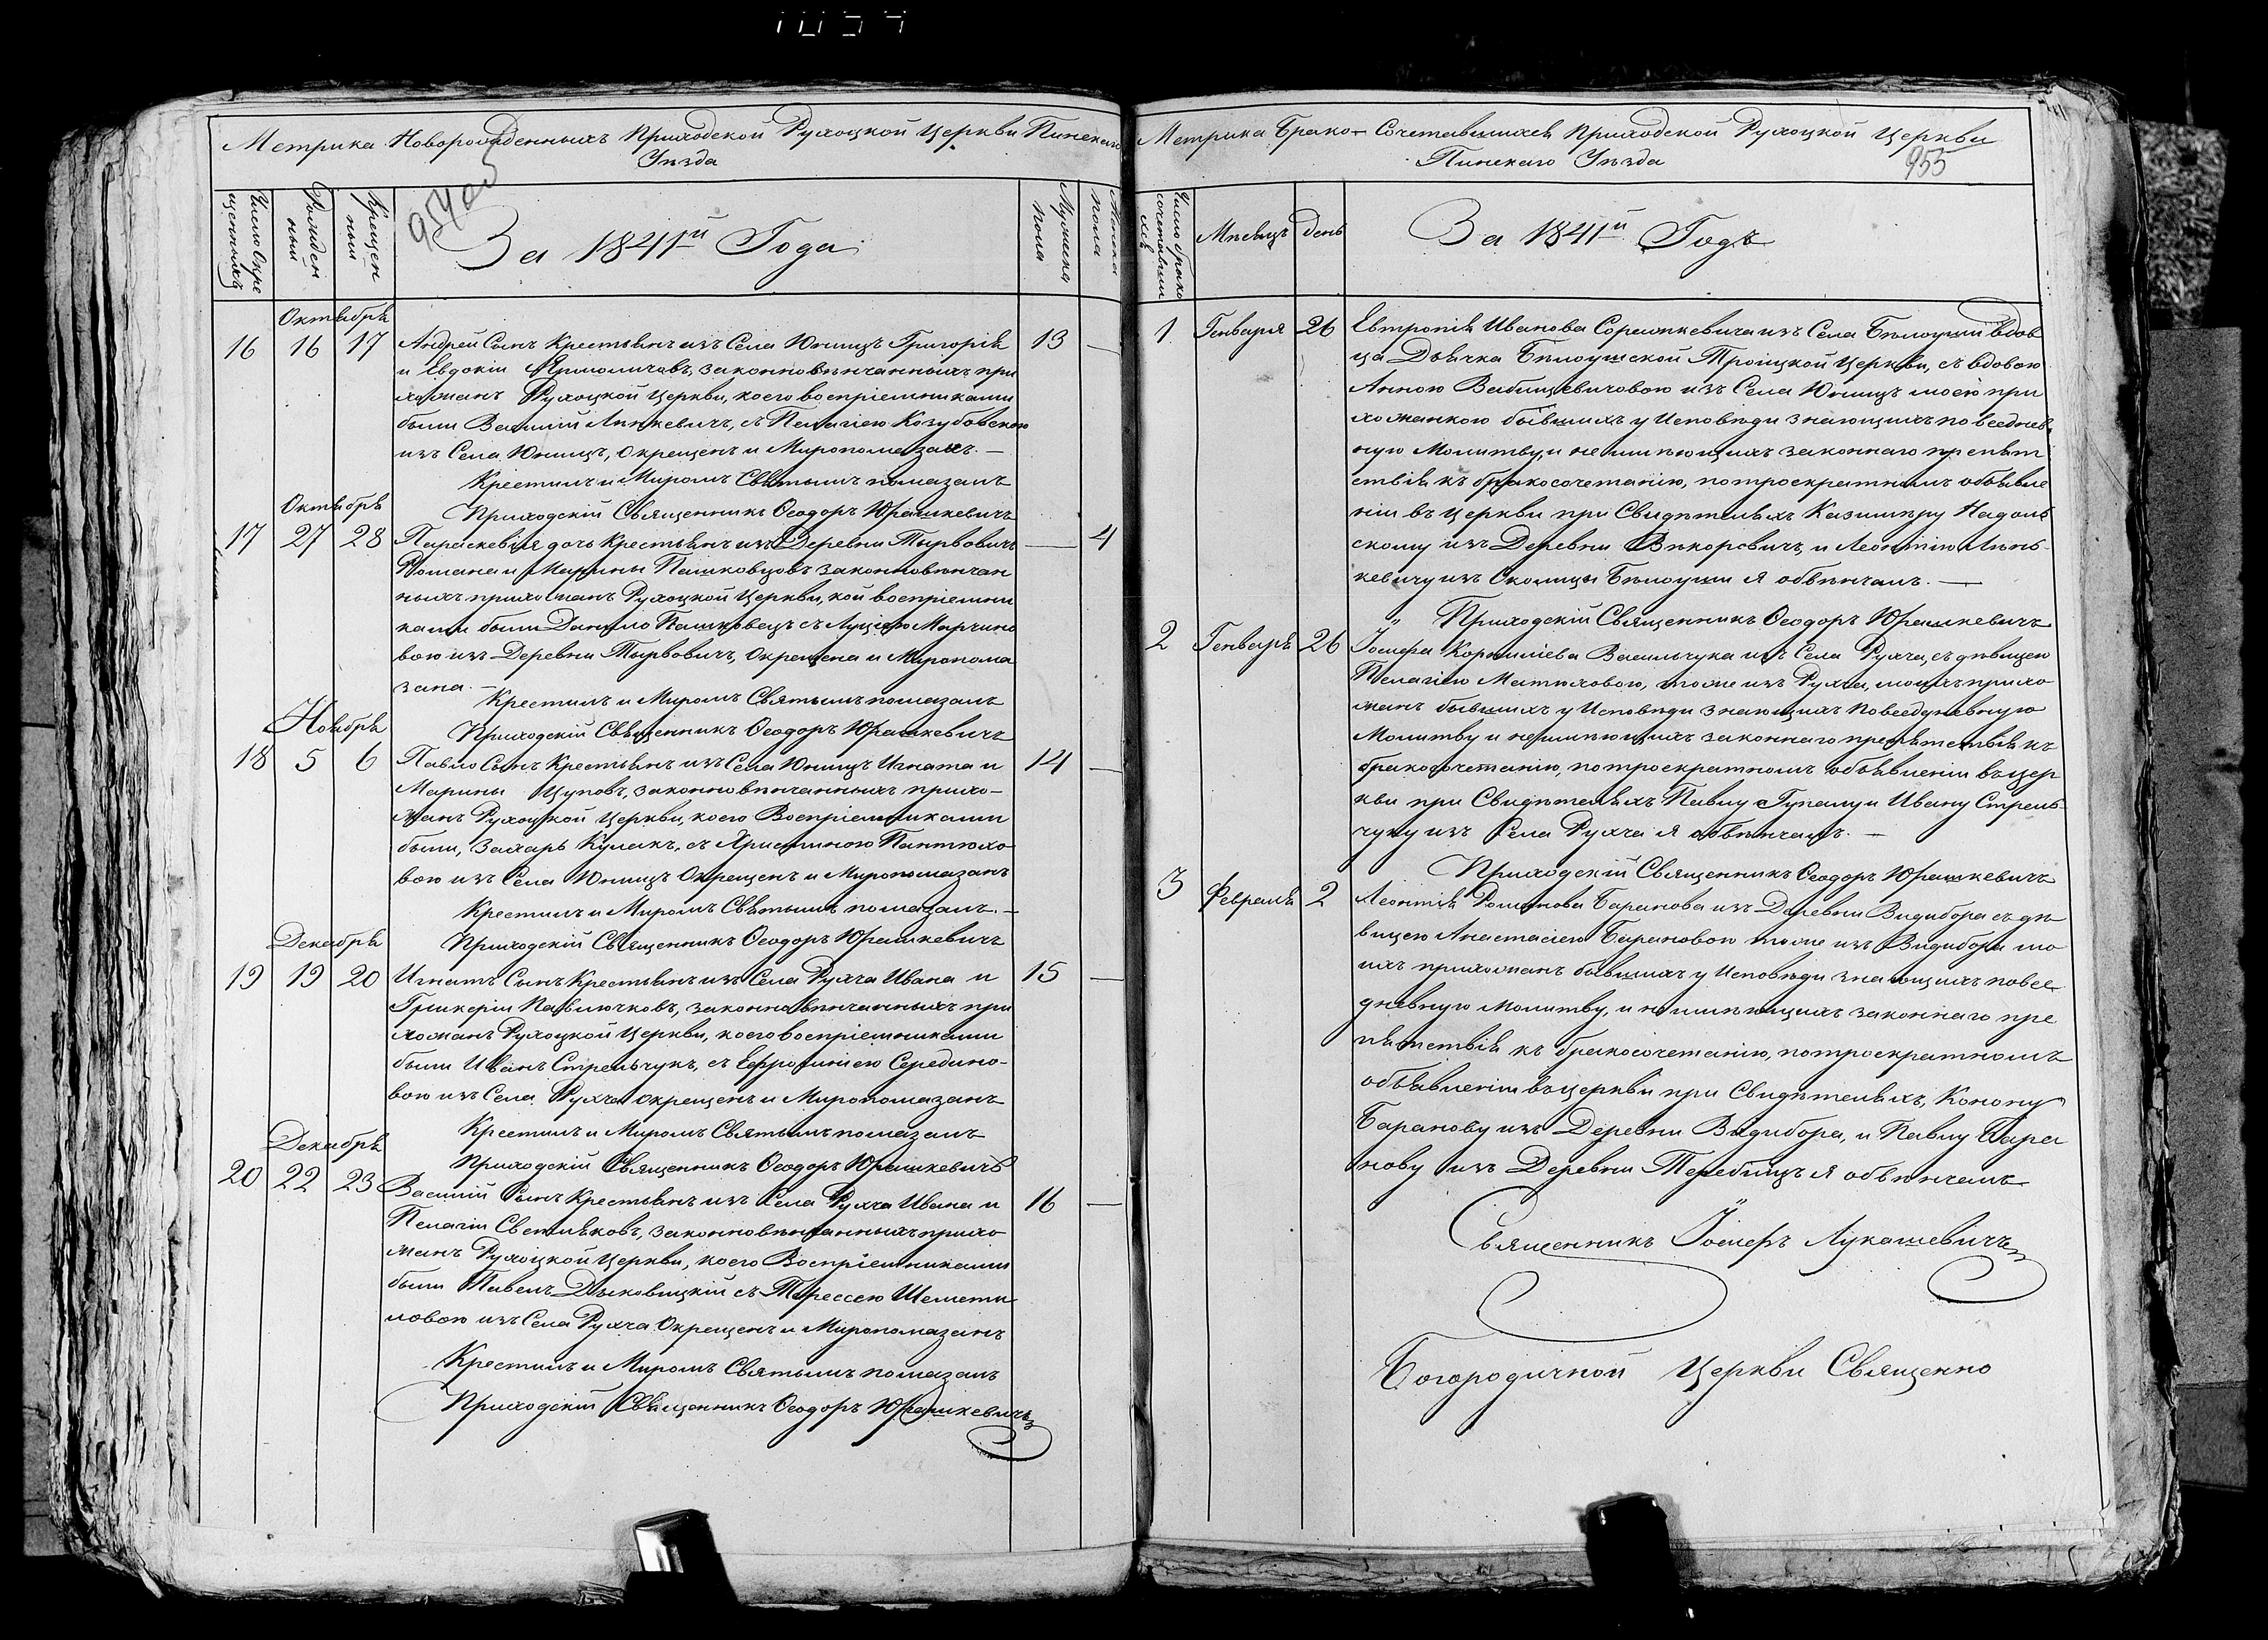 Метрика Новорожденныхъ Приходской Рухоцкой Церкви Пинскаго
Уѣзда
Число Окре
щенныхъ
Рожден
ныи
Крещен
ныи
954 об
За 1841й Года
Мужеска
пола
Женска
пола
Октября
16 16 17 Андрей Сынъ Крестьянъ изъ Села Юнищъ Григорія 13 —
и Евдокіи законновѣнчанныхъ при
хожанъ Рухоцкой Церкви, коего воспріемниками
были Василій Линкевичъ, съ Пелагіею Козубовскою
изъ Села Юнищъ, Окрещенъ и Миропомазанъ. —
Крестилъ и Миромъ Святымъ помазалъ
Приходскій Священникъ Ѳеодоръ Юрашкевичъ
Октября
17 27 28 Параскевія дочь Крестьянъ изъ Деревни Тырвовичъ — 4
Романа и Марины Пашковцовъ законновѣнчан
ныхъ прихожанъ Рухоцкой Церкви, кой воспріемни
ками были Данило Пашковецъ съ Луціею Марчино
вою изъ Деревни Тырвовичъ, Окрещена и Миропома
зана. —
Крестилъ и Миромъ Святымъ помазалъ
Приходскій Священникъ Ѳеодоръ Юрашкевичъ
Ноября
18 5 6 Павло Сынъ Крестьянъ изъ Села Юнищъ Игната и 14 —
Марины Цуповъ, законновѣнчанныхъ прихо-
жанъ Рухоцкой Церкви, коего Воспріемниками
были, Захарь Кулакъ, съ Христиною Пантюхо
вою изъ Села Юнищъ Окрещенъ и Миропомазанъ
Крестилъ и Миромъ Святымъ помазалъ. —
Приходскій Священникъ Ѳеодоръ Юрашкевичъ
Декабря
19 19 20 Игнатъ Сынъ Крестьянъ изъ Села Рухча Ивана и 15 —
Гликеріи Павлючковъ, законновѣнчанныхъ при
хожанъ Рухоцкой Церкви, коего воспріемниками
были Иванъ Стрельчукъ, съ Ефросиніею Середино-
вою изъ Села Рухча Окрещенъ и Миропомазанъ
Крестилъ и Миромъ Святымъ помазалъ
Приходскій Священникъ Ѳеодоръ Юрашкевичъ
Декабря
20 22 23 Василій Сынъ Крестьянъ изъ Села Рухча Ивана и 16 —
Пелагіи Светляковъ, законновѣнчанныхъ прихо
жанъ Рухоцкой Церкви, коего Воспріемниками
были Павелъ Дзыковицкій съ Терессею Шемети
ловою изъ Села Рухча Окрещенъ и Миропомазанъ
Крестилъ и Миромъ Святымъ помазалъ
Приходскій Священникъ Ѳеодоръ Юрашкевичъ
Метрика Брако-Сочетавшихся Приходской Рухоцкой Церкви
Пинскаго Уѣзда
955
Число брако
сочетавши
хся
Мѣсяцъ день
За 1841й Годъ
1 Генваря 26 Евтропія Иванова Сорешкевича изъ Села Бѣлоуши вдов
ца Дьячка Бѣлоушской Троіцкой Церкви, съ вдовою
Анною Вабищевичовою изъ Села Юнищъ моею при
хожанкою бывшихъ у Исповѣди знающихъ повседнев
ную Молитву, и не имѣющихъ законнаго препят
ствія къ бракосочетанію, по троекратномъ объявле
ніи въ Церкви при Свидѣтеляхъ Казимиру Надоль
скому изъ Деревни Викоровичъ, и Леонтію Линь-
кевичу изъ Околицы Бѣлоуши я обвѣнчалъ. —
„ Приходскій Священникъ Ѳеодоръ Юрашкевичъ
2 Генваря 26 Іосифа Корнилієва Васильчука изъ Села Рухча, съ дѣвицею
Пелагіею Матюховою, тоже изъ Рухча, моихъ прихо
жанъ бывшихъ у Исповѣди знающихъ Повседневную
Молитву и неимѣющихъ законнаго препятствія къ
бракосочетанію, по троекратномъ объявленіи въ цер
кви при Свидѣтеляхъ Павлу Гупалу и Ивану Стрель-
чуку изъ Села Рухча я обвѣнчалъ. —
Приходскій Священникъ Ѳеодоръ Юрашкевичъ
3 Февраля 2 Леонтія Романова Баранова изъ Деревни Видибора съ дѣ
вицею Анастасіею Барановою тоже изъ Видибора мо
ихъ прихожанъ бывшихъ у Исповѣди знающихъ повсе
дневную Молитву, и неимѣющихъ законнаго пре
пятствія къ бракосочетанію, по троекратномъ
объявленіи въ церкви при Свидѣтеляхъ, Конону
Баранову изъ Деревни Видибора, и Павлу Бара
нову изъ Деревни Теребищъ я обвѣнчалъ
Священникъ Іосифъ Лукашевичъ
Богородичной Церкви Священно